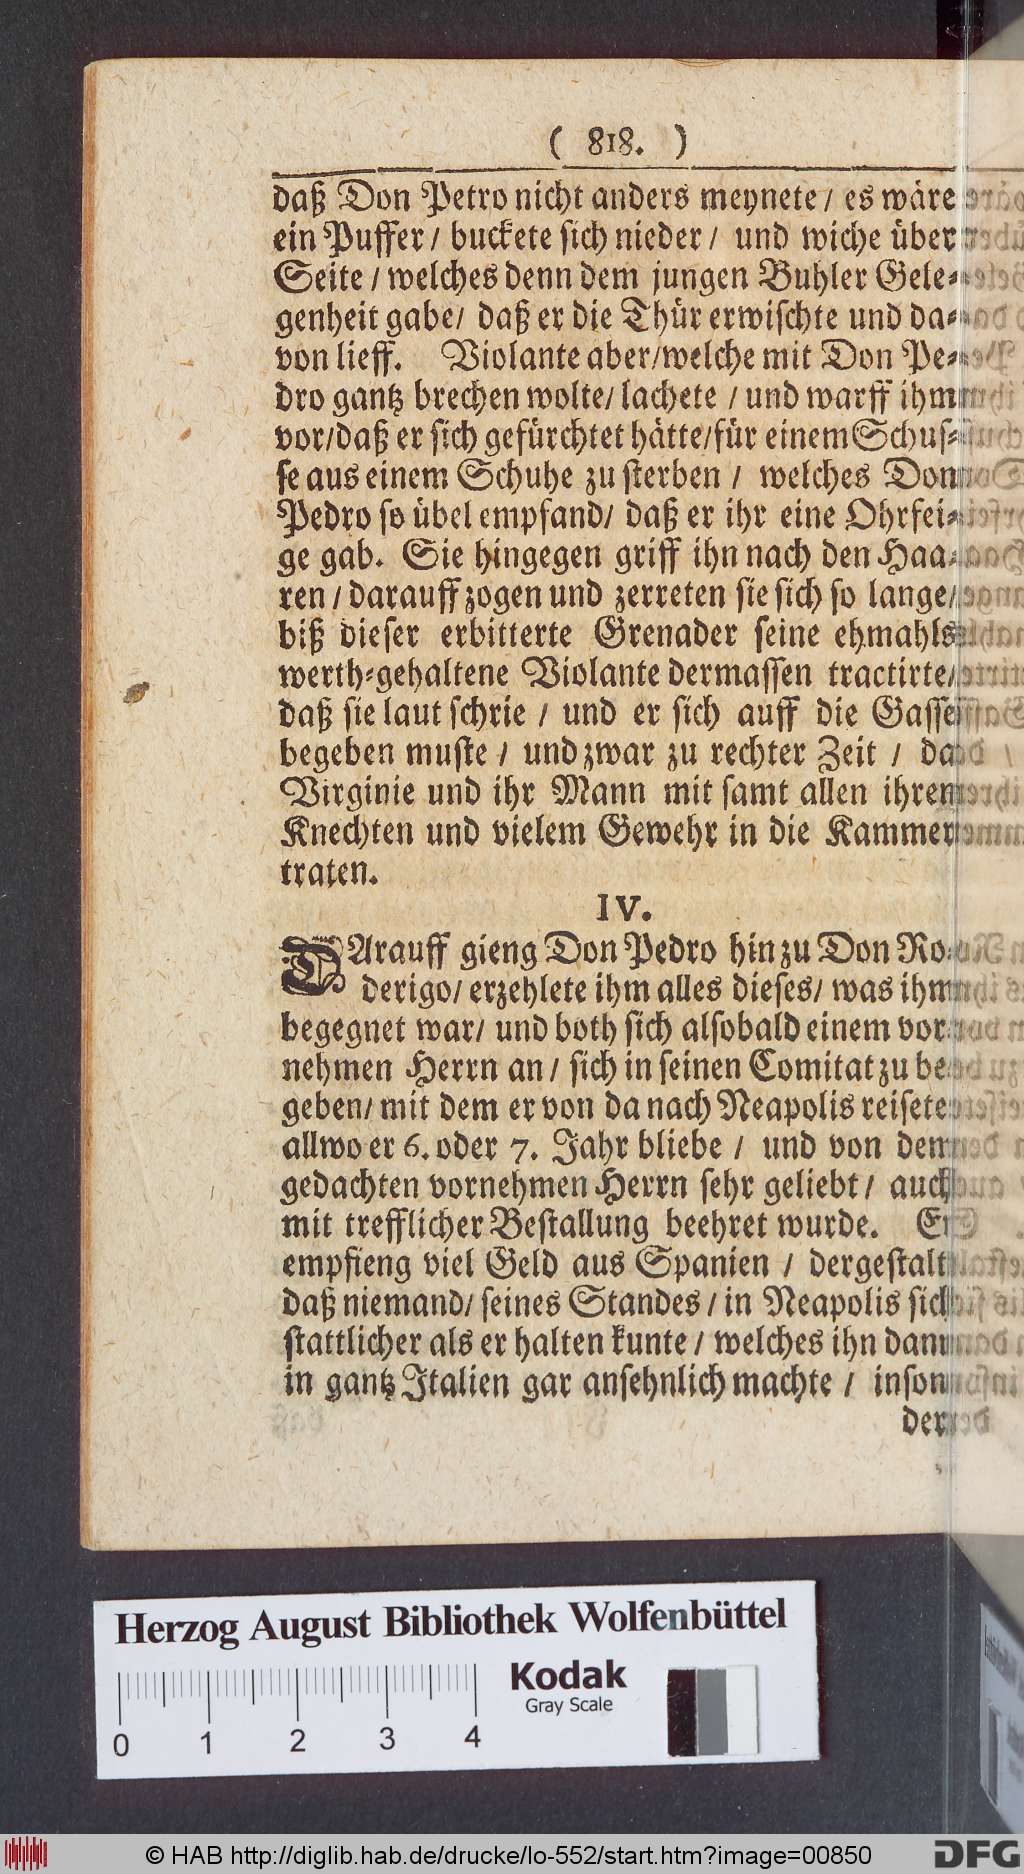 ( 818. )
daß Don Petro nicht anders meynete / es wäre
ein Puffer / buckete sich nieder / und wiche über
Seite / welches denn dem jungen Buhler Gele-
genheit gabe / daß er die Thür erwischte und da-
von lieff. Violante aber / welche mit Don Pe-
dro gantz brechen wolte / lachete / und warff ihm
vor / daß er sich gefürchtet hätte / für einem Schus-
se aus einem Schuhe zu sterben / welches Don
Pedro so übel empfand / daß er ihr eine Ohrfei-
ge gab. Sie hingegen griff ihn nach den Haa-
ren / darauff zogen und zerreten sie sich so lange /
biß dieser erbitterte Grenader seine ehmahls
werth-gehaltene Violante dermassen tractirte /
daß sie laut schrie / und er sich auff die Gassen
begeben muste / und zwar zu rechter Zeit / da
Virginie und ihr Mann mit samt allen ihren
Knechten und vielem Gewehr in die Kammer
traten.
IV.
DArauff gieng Don Pedro hin zu Don Ro-
derigo / erzehlete ihm alles dieses / was ihm
begegnet war / und both sich alsobald einem vor-
nehmen Herrn an / sich in seinen Comitat zu be-
geben / mit dem er von da nach Neapolis reisete
allwo er 6. oder 7. Jahr bliebe / und von dem
gedachten vornehmen Herrn sehr geliebt / auch
mit trefflicher Bestallung beehret wurde. Er
empfieng viel Geld aus Spanien / dergestalt
daß niemand / seines Standes / in Neapolis sich
stattlicher als er halten kunte / welches ihn dann
in gantz Italien gar ansehnlich machte / inson-
der
Herzog August Bibliothek Wolfenbüttel
Kodak
Gray Scale
0 1 2 3 4
© HAB http://diglib.hab.de/drucke/lo-552/start.htm?image=00850
DFG